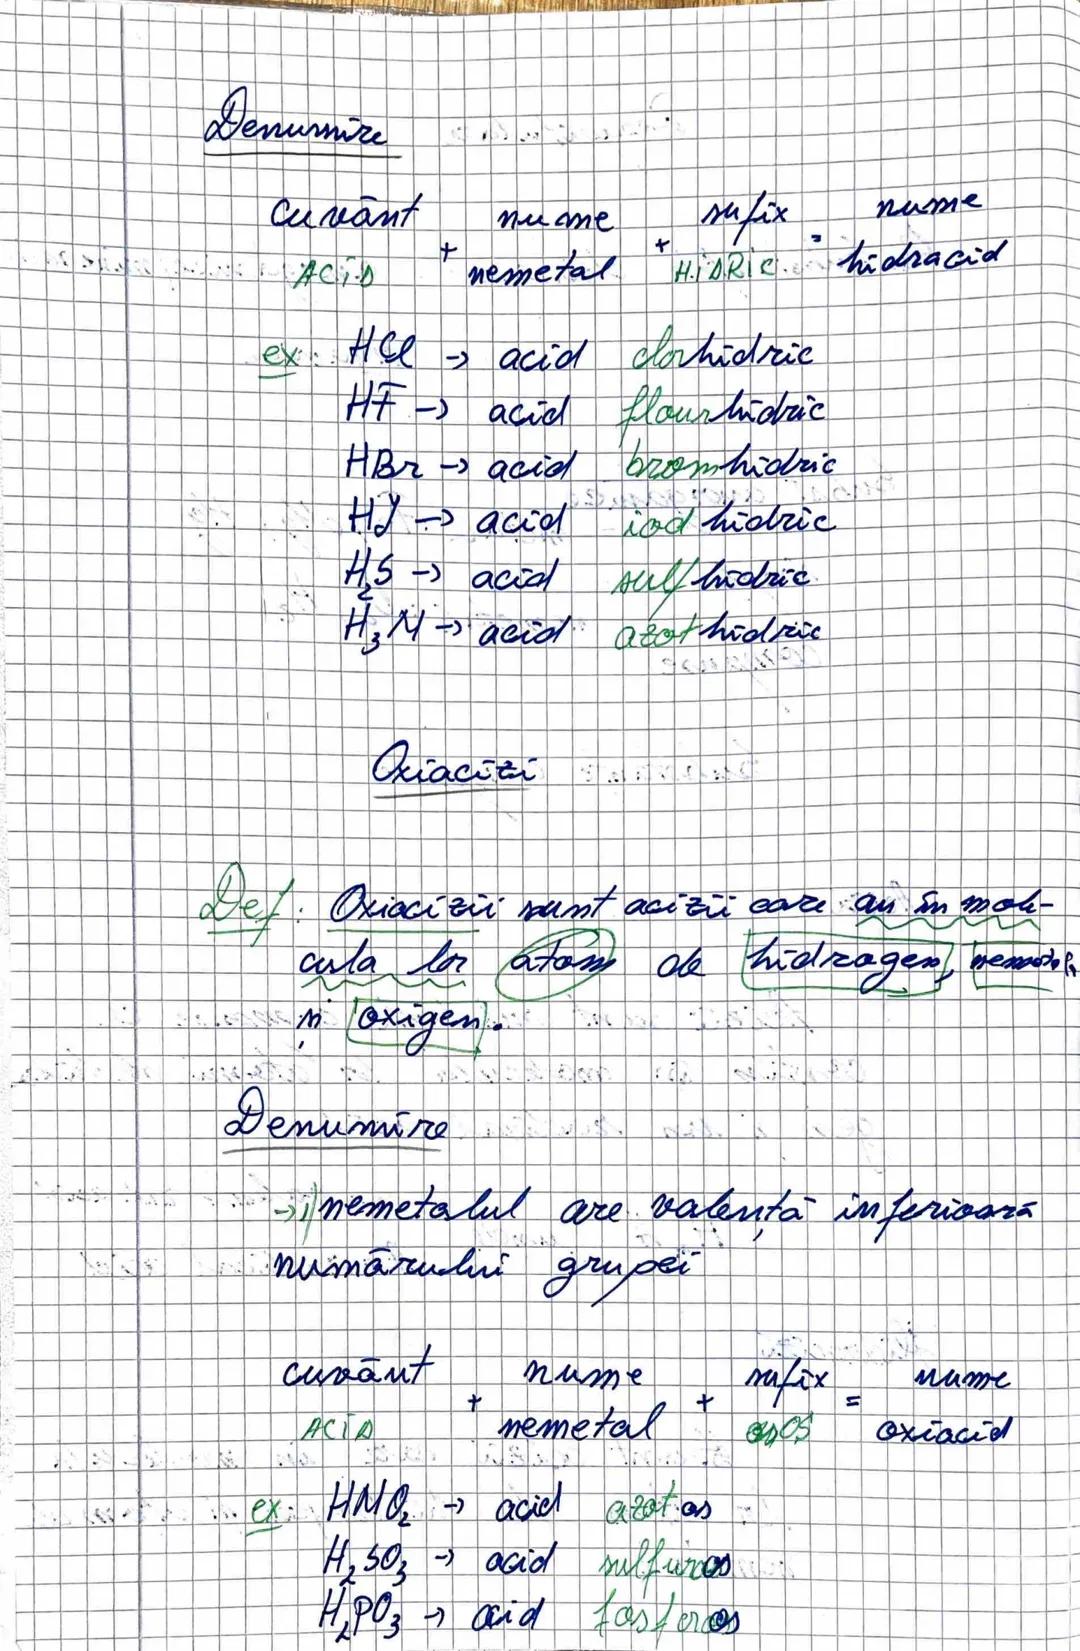 Denumire
cuvânt + nume + sufix = nume
ACID nemetal HIDRIC hidracid
ex: HCl → acid clorhidric
HF → acid flourhidric
HBr → acid bromhidric
HJ → acid iodhidric
H₂S → acid sulfhidric
H₃N → acid azothidric
Oxiacizi
Def: Oxiacizii sunt acizii care au în mole-
cula lor atom de hidrogen, nemetal
și oxigen.
Denumire
→ 1) nemetalul are valență inferioară
numărului grupei
cuvânt + nume + sufix = nume
ACID nemetal OS oxiacid
ex: HNO₂ → acid azotos
H₂SO₃ → acid sulfuros
H₂PO₃ → acid fosforos